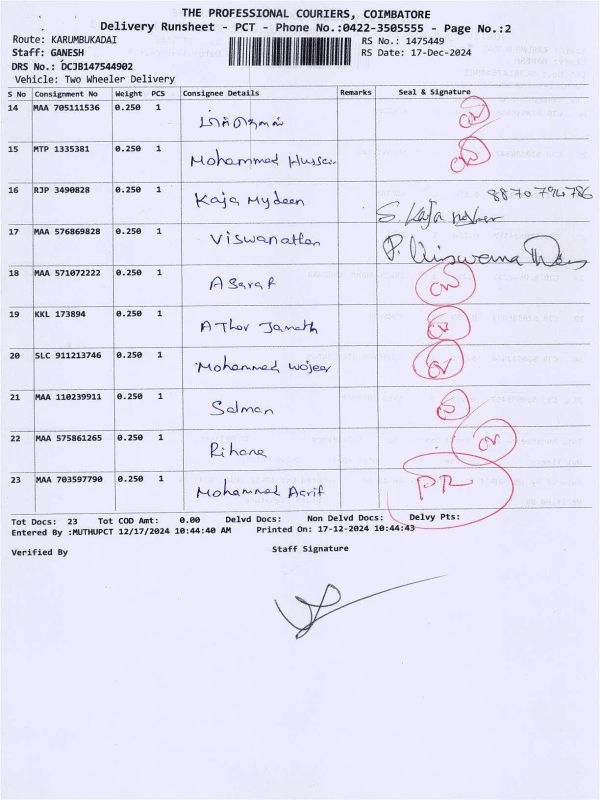 THE PROFESSIONAL COURIERS, COIMBATORE
Delivery Runsheet - PCT - Phone No.:0422-3505555 - Page No.:2
Route: KARUMBUKADAI RS No.: 1475449
Staff: GANESH RS Date: 17-Dec-2024
DRS No.: DCJB147544902
Vehicle: Two Wheeler Delivery
S No Consignment No Weight PCS Consignee Details Remarks Seal & Signature
14 MAA 705111536 0.250 1
15 MTP 1335381 0.250 1 Mohammed Hussain
16 RJP 3490828 0.250 1 Kaja Mydeen 8870794786
S. Kaja
17 MAA 576869828 0.250 1 Viswanathan P.
18 MAA 571072222 0.250 1 Asaraf
19 KKL 173894 0.250 1 AThar Jamath
20 SLC 911213746 0.250 1 Mohammed Wojeer
21 MAA 110239911 0.250 1 Salman
22 MAA 575861265 0.250 1 Rihana
23 MAA 703597790 0.250 1 Mohammed Aarif PR
Tot Docs: 23 Tot COD Amt: 0.00 Delvd Docs: Non Delvd Docs: Delvy Pts:
Entered By :MUTHUPCT 12/17/2024 10:44:40 AM Printed On: 17-12-2024 10:44:43
Verified By Staff Signature